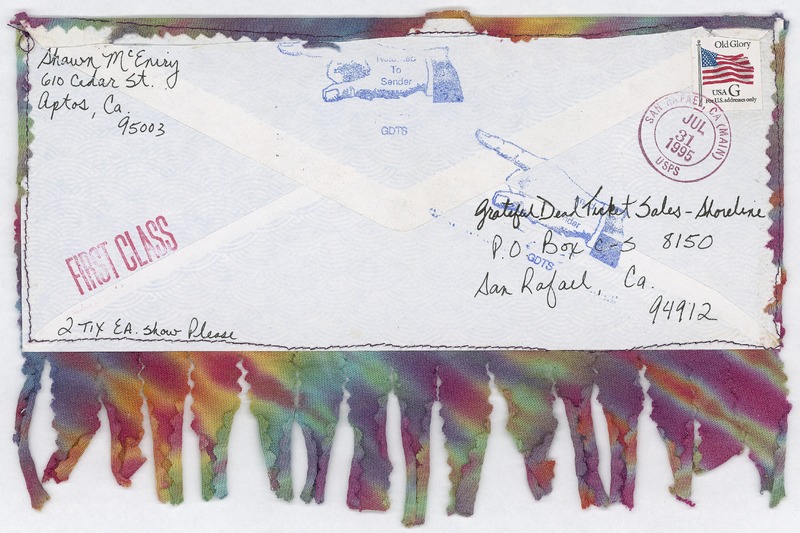 Shawn McEniry
610 Cedar St.
Aptos, Ca.
95003
Returned
To
Sender
GDTS
Old Glory
USA G
For U.S. addresses only
SAN RAFAEL, CA (MAIN)
JUL
31
1995
USPS
Grateful Dead Ticket Sales - Shoreline
P.O Box C-S 8150
San Rafael, Ca.
94912
GDTS
FIRST CLASS
2 Tix EA. Show Please